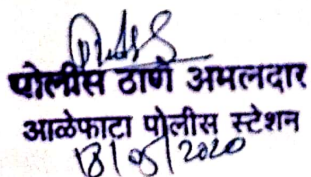 पोलीस ठाणे अमलदार
आळेफाटा पोलीस स्टेशन
18/05/2020